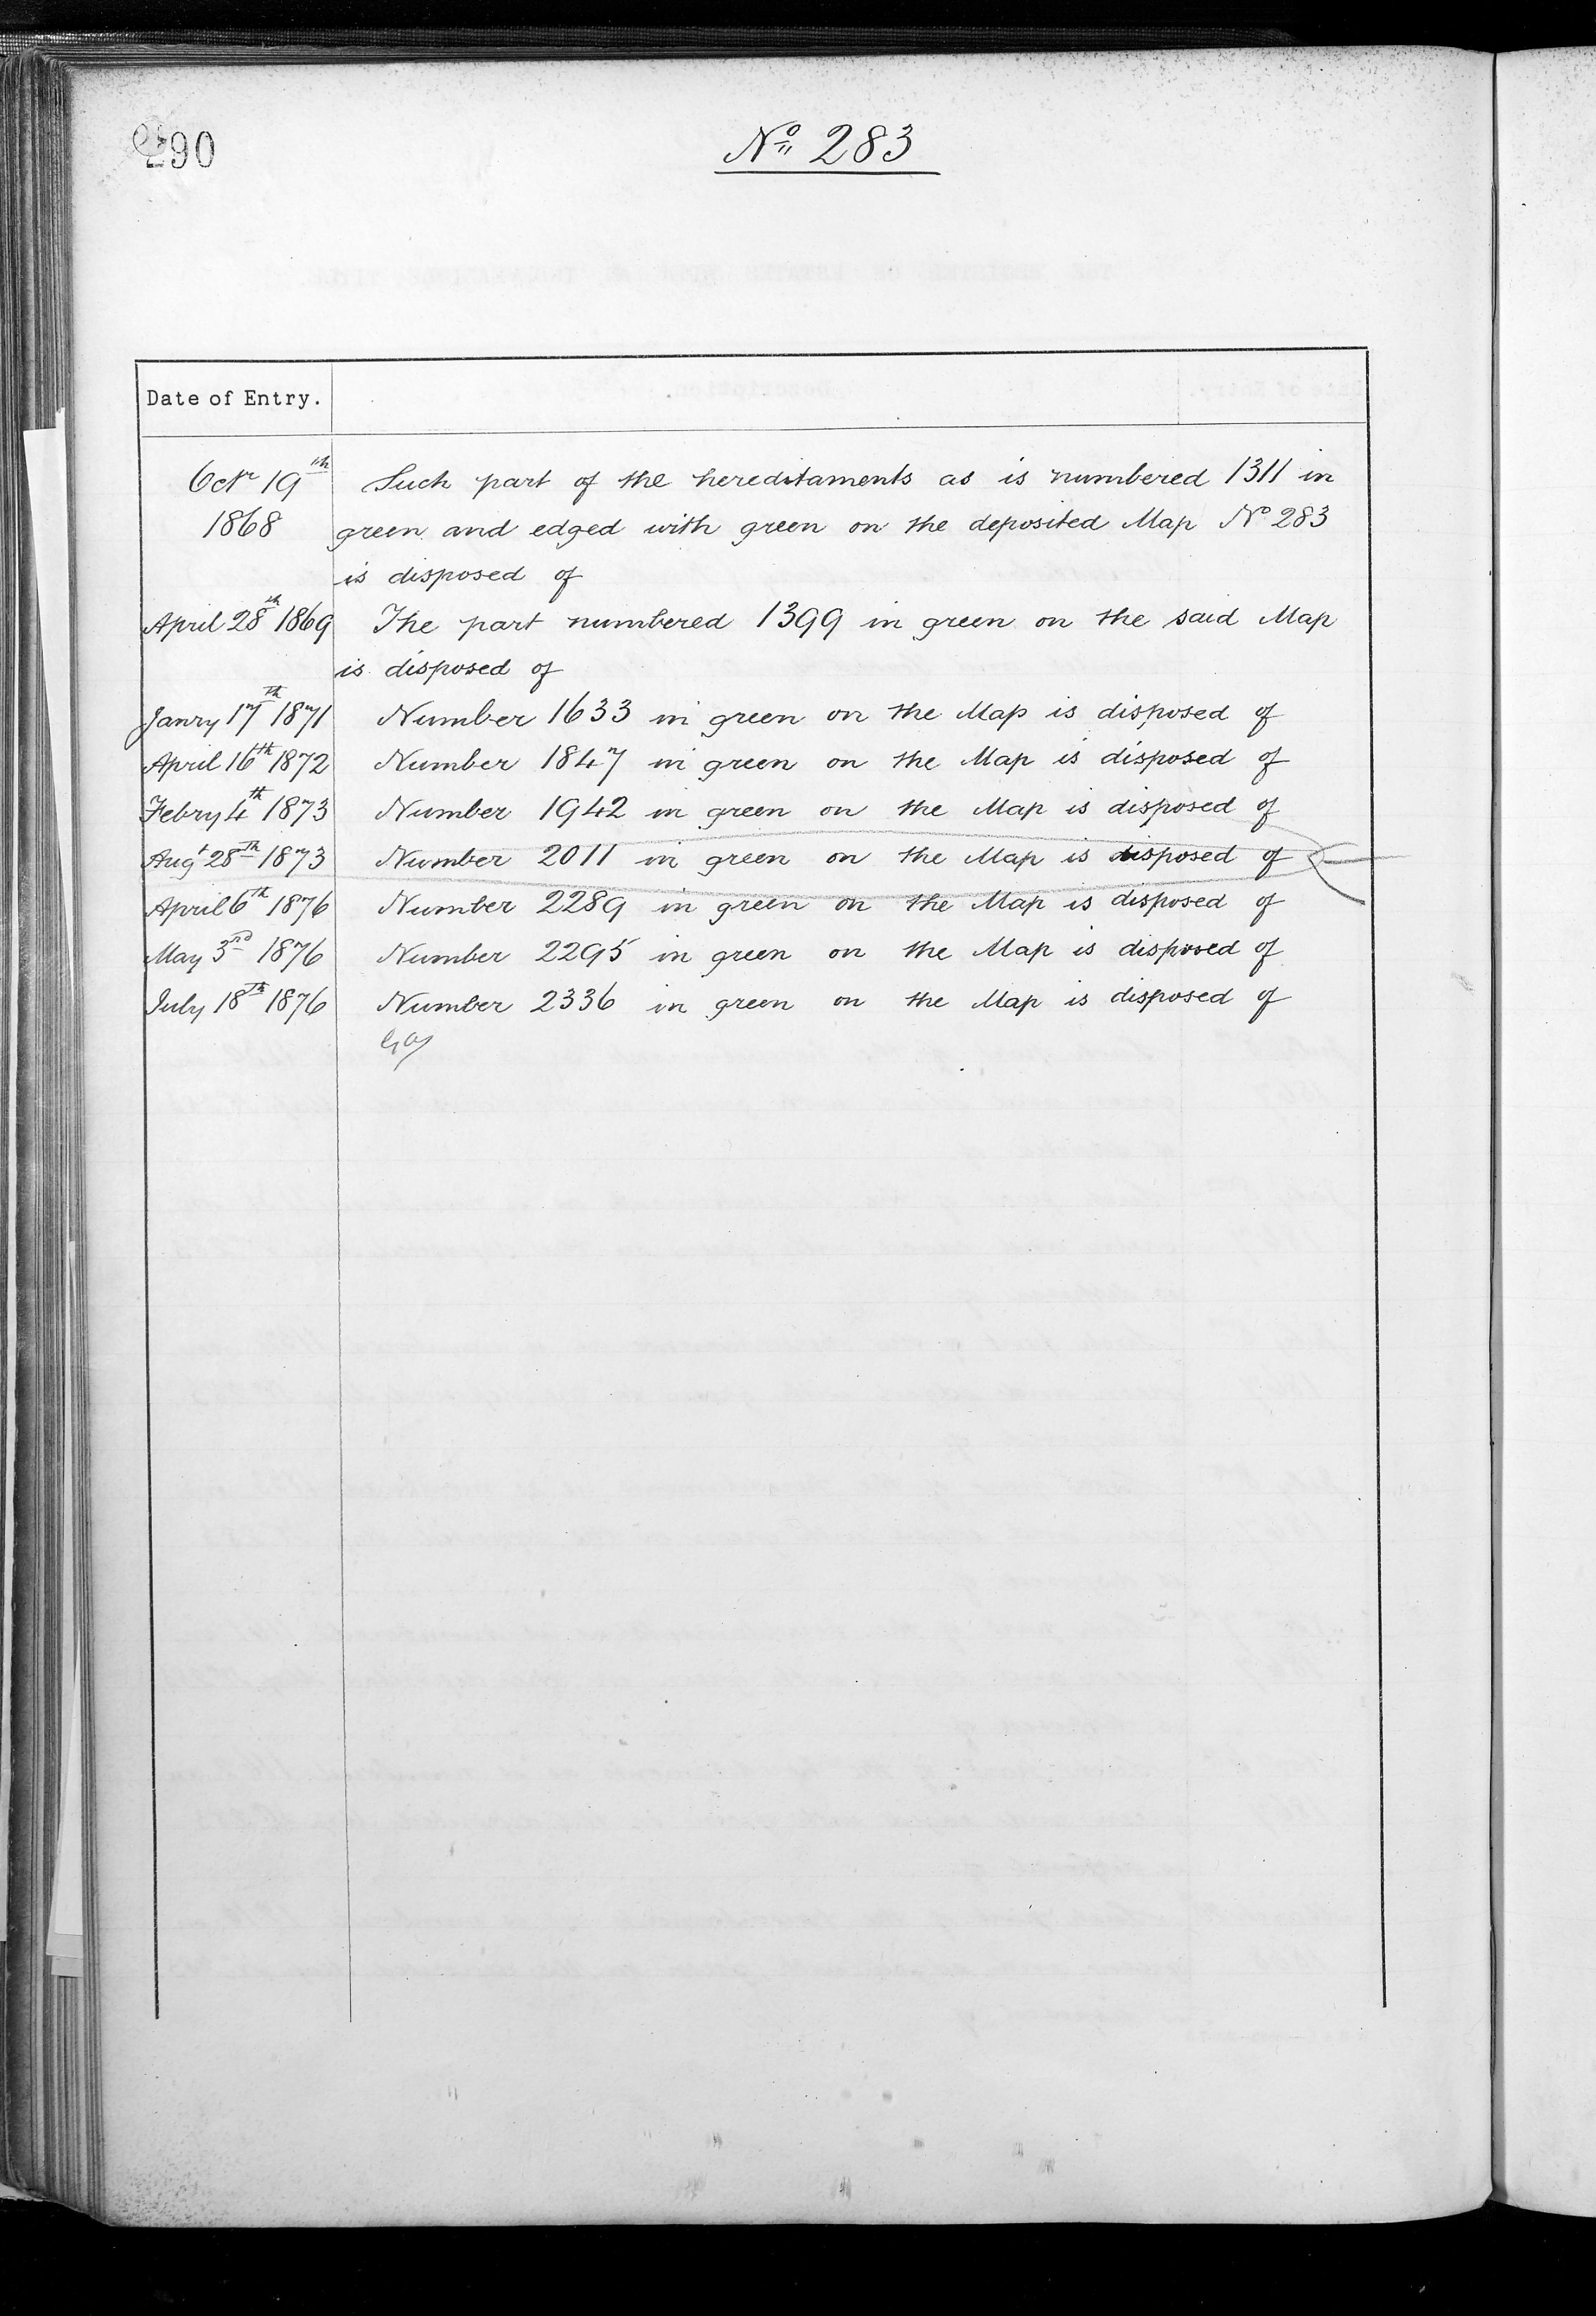 290
No 283
Date of Entry.
Octr 19th Such part of the hereditaments as is numbered 1311 in
1868 green and edged with green on the deposited Map No 283
is disposed of
April 28th 1869 The part numbered 1399 in green on the said Map
is disposed of
Janry 17th 1871 Number 1633 in green on the Map is disposed of
April 16th 1872 Number 1847 in green on the Map is disposed of
Febry 4th 1873 Number 1942 in green on the Map is disposed of
Augt 28th 1873 Number 2011 in green on the Map is disposed of
April 6th 1876 Number 2289 in green on the Map is disposed of
May 3rd 1876 Number 2295 in green on the Map is disposed of
July 18th 1876 Number 2336 in green on the Map is disposed of